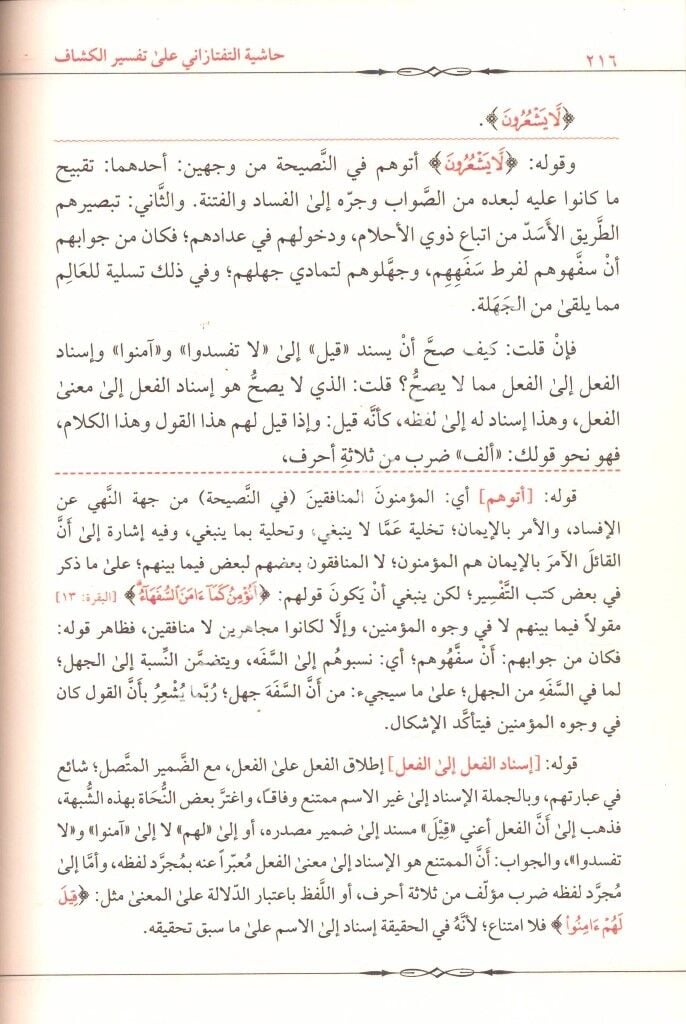 ٢١٦
حاشية التفتازاني علىٰ تفسير الكشاف
﴿لَّا يَشْعُرُونَ﴾.
وقوله: ﴿لَّا يَشْعُرُونَ﴾ أتوهم في النَّصيحة من وجهين: أحدهما: تقبيح
ما كانوا عليه لبعده من الصَّواب وجرّه إلىٰ الفساد والفتنة. والثَّاني: تبصيرهم
الطَّريق الأَسَدّ من اتباع ذوي الأحلام، ودخولهم في عدادهم؛ فكان من جوابهم
أنْ سفَّهوهم لفرط سَفَهِهِم، وجهَّلوهم لتمادي جهلهم؛ وفي ذلك تسلية للعَالِم
مما يلقىٰ من الجَهَلة.
فإنْ قلت: كيف صحَّ أنْ يسند «قيل» إلىٰ «لا تفسدوا» و«آمنوا» وإسناد
الفعل إلىٰ الفعل مما لا يصحُّ؟ قلت: الذي لا يصحُّ هو إسناد الفعل إلىٰ معنىٰ
الفعل، وهذا إسناد له إلىٰ لفظه، كأنَّه قيل: وإذا قيل لهم هذا القول وهذا الكلام،
فهو نحو قولك: «ألف» ضرب من ثلاثةِ أحرف،
قوله: [أتوهم] أي: المؤمنونَ المنافقينَ (في النَّصيحة) من جهة النَّهي عن
الإفساد، والأمر بالإيمان؛ تخلية عَمَّا لا ينبغي، وتحلية بما ينبغي، وفيه إشارة إلىٰ أنَّ
القائلَ الآمرَ بالإيمان هم المؤمنون؛ لا المنافقون بعضهم لبعض فيما بينهم؛ علىٰ ما ذكر
في بعض كتب التَّفْسير؛ لكن ينبغي أنْ يَكونَ قولهم: ﴿أَنُؤْمِنُ كَمَآ ءَامَنَ ٱلسُّفَهَآءُ﴾ [البقرة: ١٣]
مقولاً فيما بينهم لا في وجوه المؤمنين، وإلَّا لكانوا مجاهرين لا منافقين، فظاهر قوله:
فكان من جوابهم: أنْ سفَّهُوهم؛ أي: نسبوهُم إلىٰ السَّفَه، ويتضمَّن النِّسبة إلىٰ الجهل؛
لما في السَّفَهِ من الجهل؛ علىٰ ما سيجيء: من أنَّ السَّفَهَ جهل؛ رُبَّما يُشْعِرُ بأنَّ القول كان
في وجوه المؤمنين فيتأكَّد الإشكال.
قوله: [إسناد الفعل إلىٰ الفعل] إطلاق الفعل علىٰ الفعل، مع الضَّمير المتَّصل؛ شائع
في عبارتهم، وبالجملة الإسناد إلىٰ غير الاسم ممتنع وفاقاً، واغترَّ بعض النُّحَاة بهذه الشُّبهة،
فذهب إلىٰ أنَّ الفعل أعني «قِيْلَ» مسند إلىٰ ضمير مصدره، أو إلىٰ «لهم» لا إلىٰ «آمنوا» و«لا
تفسدوا»، والجواب: أنَّ الممتنع هو الإسناد إلىٰ معنىٰ الفعل مُعبّراً عنه بمُجرَّد لفظه، وأمَّا إلىٰ
مُجرَّد لفظه ضرب مؤلّف من ثلاثة أحرف، أو اللَّفظ باعتبار الدّلالة علىٰ المعنىٰ مثل: ﴿قِيلَ
لَهُمْ ءَامِنُوا۟﴾ فلا امتناع؛ لأنَّهُ في الحقيقة إسناد إلىٰ الاسم علىٰ ما سبق تحقيقه.